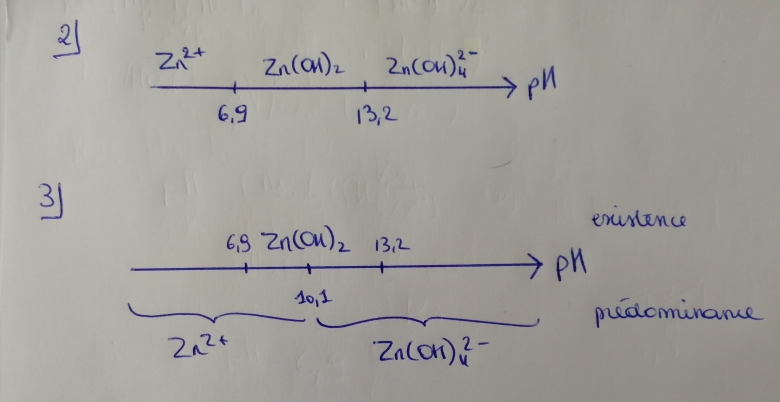 2)
Zn²⁺ Zn(OH)₂ Zn(OH)₄²⁻
pH
6,9 13,2
3)
existence
6,9 Zn(OH)₂ 13,2
pH
10,1
prédominance
Zn²⁺ Zn(OH)₄²⁻